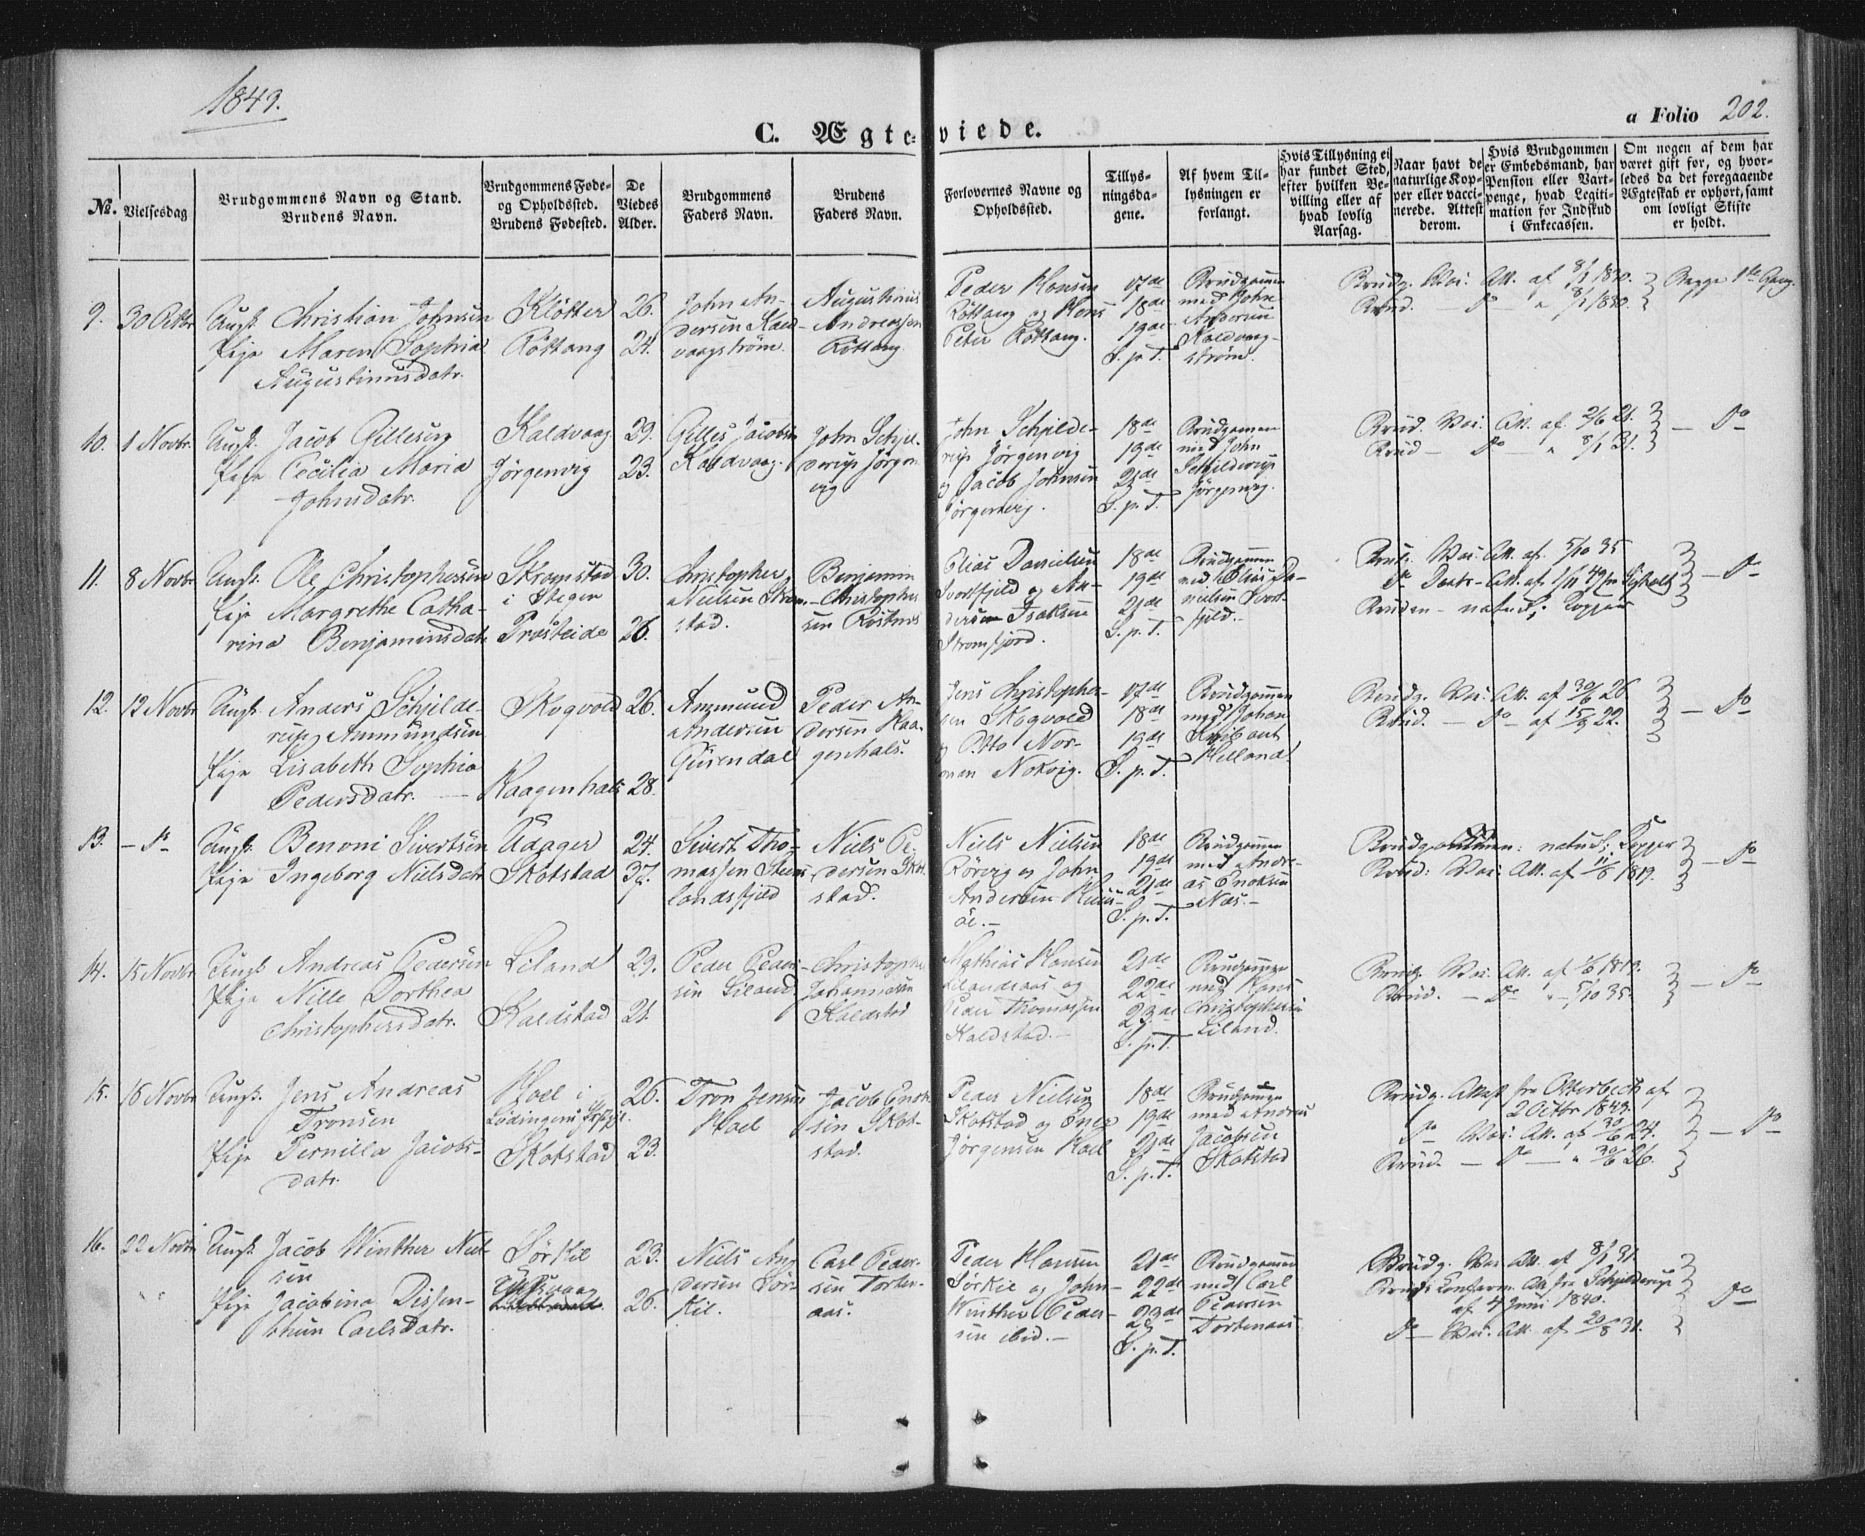 1849.
C. Ægteviede.
a Folio 202.
No.
Vielsesdag
Brudgommens Navn og Stand.
Brudens Navn.
Brudgommens Føde-
og Opholdssted.
Brudens Fødested.
De
Viedes
Alder.
Brudgommens
Faders Navn.
Brudens
Faders Navn.
Forlovernes Navne og
Opholdssted.
Tillys-
ningsda-
gene.
Af hvem Til-
lysningen er
forlangt.
Hvis Tillysning ei
har fundet Sted,
efter hvilken Be-
villing eller af
hvad lovlig
Aarsag.
Naar havt de
naturlige Kop-
per eller vacci-
nerede. Attest
derom.
Hvis Brudgommen
er Embedsmand, har
Pension eller Vart-
penge, hvad Legiti-
mation for Indskud
i Enkecassen.
Om nogen af dem har
været gift før, og hvor-
ledes da det foregaaende
Ægteskab er ophørt, samt
om lovligt Skifte
er holdt.
9. 30 Octbr
Ungk. Christian Johnsen
Pige Maren Sophia
Augustinusdatr.
Klötter
Röttang
26.
24.
John An-
dersen Kald-
vaagstrøm
Augustinus
Andreassen
Röttang
Peder Hansen
Röttang og Hans
Peter Röttang.
17de
18de
19de
S. p. T.
Brudgommen
med John
Andersen
Kaldvaag-
strøm.
Brudg. Vac. Att. af 8/1 1830.
Brud. — Do — " 8/1 1830.
Begge 1ste Gang.
10. 1 Novbr.
Ungk. Jacob Gillesen
Pige Cecilia Maria
Johnsdatr.
Kaldvaag
Jørgenvig
29.
23.
Gilles Jacobsen
Kaldvaag.
John Schjel-
derup Jørgen-
vig
John Schjelde-
rup Jørgenvig
og Jacob Johnsen
Jørgenvig.
18de
19de
21de
S. p. T.
Brudgommen
med John
Schjelderup
Jørgenvig.
Brudg. Vac. Att. af 2/6 21.
Brud — Do — " 8/1 31.
— Do
11. 8 Novbr
Ungk. Ole Christophersen
Pige Margrethe Catha-
rina Benjaminsdatr
Skramstad
i Stegen
Presteide
30.
26.
Christopher
Nielsen Skram-
stad.
Benjamin
Christopher-
sen Röstnes
Elias Danielsen
Svortfjeld og An-
dersen Isaksen
Strømfjord.
18de
19de
21de
S. p. T.
Brudgommen
med Elias Da-
nielsen Svort-
fjeld.
Brudg. Vac. Att. af 5/10 35
Bruden — naturl. Kopper
— Do
12. 12 Novbr
Ungk. Anders Schjelde-
rup Ammundsen
Pige Lisabeth Sophia
Pedersdatr. —
Skogvold
Kaagenhals
26.
28.
Ammund
Andersen
Gurendal
Peder An-
dersen Kaa-
genhals.
Jens Christopher-
sen Skogvold
og Otto Nor-
man Nokvig.
17de
18de
19de
S. p. T.
Brudgommen
med Johan
Helland
Brudg. Vac. Att. af 30/6 26
Brud. — Do — af 15/9 22.
— Do
13. — Do
Ungk. Benoni Sivertsen
Pige Ingeborg Nielsdatr
Udager
Skotstad
24.
37.
Sivert Tho-
massen Steens-
landsfjeld
Niels Pe-
dersen Skot-
stad.
Niels Nielsen
Rörvig og John
Andersen Huus-
öe. —
18de
19de
21de
S. p. T.
Brudgommen
med Andre-
as Enoksen
Næs. —
Brudgommen: naturl. Kopper
Brud: Vac. Att. af 11/6 1819.
— Do
14. 15 Novbr
Ungk. Andreas Pedersen
Pige Nille Dorthea
Christophersdatr.
Liland
Kaldstad
29.
21.
Peder Peder-
sen Liland
Christopher
Johannesen
Kaldstad
Mathias Hansen
Lilandsaas og
Peder Thomassen
Kaldstad. —
21de
22de
23de
S. p. T.
Brudgommen
med Hans
Christophersen
Liland.
Brudg. Vac. Att. af 1/6 1819.
Brud. — Do " 5/10 35.
— Do
15. 16 Novbr
Ungk. Jens Andreas
Tronsen
Pige Pernilla Jacobs-
datr.
Hoel i
Lødingens Prgj.
Skotstad
26.
23.
Tron Jensen
Hoel
Jacob Enok-
sen Skot-
stad.
Peder Nielsen
Skotstad og Enep
Jørgensen Hoel
18de
19de
21de
S. p. T.
Brudgommen
med Andreas
Jacobsen
Skotstad
Brudg. Attest fra Otterbech af
2 Octbr 1849.
Do Vac. Att. af 30/6 24.
Brud. — Do — " 30/6 26.
— Do
16. 22 Novbr
Ungk. Jacob Winther Niel-
sen
Pige Jacobina Dissen-
thun Carlsdatr.
Sörkil
23.
26.
Niels An-
dersen Sör-
kil.
Carl Peder-
sen Torten-
aas.
Peder Hansen
Sörkil og John
Winther Peder-
sen ibid. —
21de
22de
23de
S. p. T.
Brudgommen
med Carl
Pedersen
Tortenaas
Brudg. Vac. Att. af 8/1 31.
Brud: Confirm. Att. fra Schjelderup
af 4 Juni 1840.
Do — Vac. Att. af 20/8 31.
Do